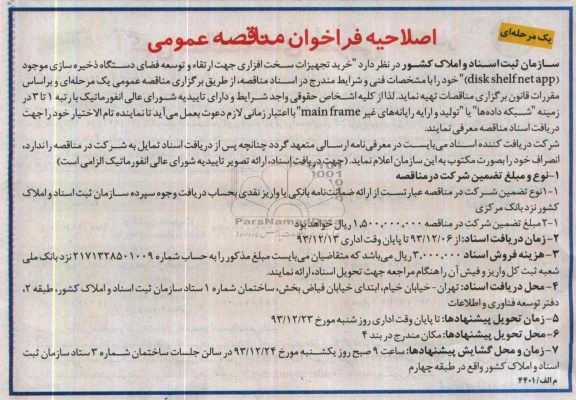 یک مرحله‌ای
اصلاحیه فراخوان مناقصه عمومی
سازمان ثبت اسناد و املاک کشور در نظر دارد "خرید تجهیزات سخت افزاری جهت ارتقاء و توسعه فضای دستگاه ذخیره سازی موجود
(disk shelf net app)" خود را با مشخصات فنی و شرایط مندرج در اسناد مناقصه، از طریق برگزاری مناقصه عمومی یک مرحله‌ای و براساس
مقررات قانون برگزاری مناقصات تهیه نماید. لذا از کلیه اشخاص حقوقی واجد شرایط و دارای تاییدیه شورای عالی انفورماتیک با رتبه ۱ تا ۳ در
زمینه "شبکه داده‌ها" یا "تولید و ارایه رایانه‌های غیر main frame" با اعتبار زمانی لازم دعوت بعمل می‌آید تا نماینده تام الاختیار خود را جهت
دریافت اسناد مناقصه معرفی نمایند.
شرکت دریافت کننده اسناد می‌بایست در معرفی‌نامه ارسالی متعهد گردد چنانچه پس از دریافت اسناد تمایل به شرکت در مناقصه را ندارد،
انصراف خود را بصورت مکتوب به این سازمان اعلام نماید. (جهت دریافت اسناد، ارائه تصویر تاییدیه شورای عالی انفورماتیک الزامی است)
۱-نوع و مبلغ تضمین شرکت در مناقصه
۱-۱نوع تضمین شرکت در مناقصه عبارتست از ارائه ضمانت‌نامه بانکی یا واریز نقدی بحساب دریافت وجوه سپرده سازمان ثبت اسناد و املاک
کشور نزد بانک مرکزی
۲-۱ مبلغ تضمین شرکت در مناقصه ۱,۵۰۰,۰۰۰,۰۰۰ ریال خواهد بود
۲- زمان دریافت اسناد: از ۹۳/۱۲/۰۶ تا پایان وقت اداری ۹۳/۱۲/۱۳
۳- هزینه فروش اسناد ۳,۰۰۰,۰۰۰ ریال می‌باشد که متقاضیان می‌بایست مبلغ مذکور را به حساب شماره ۲۱۷۱۳۲۸۵۰۱۰۰۹ نزد بانک ملی
شعبه ثبت کل واریز و فیش آن را هنگام مراجعه جهت تحویل اسناد، ارائه نمایند.
۴- محل دریافت اسناد: تهران - خیابان خیام، ابتدای خیابان فیاض بخش، ساختمان شماره ۱ ستاد سازمان ثبت اسناد و املاک کشور، طبقه ۲،
دفتر توسعه فناوری و اطلاعات
۵- زمان تحویل پیشنهادها: تا پایان وقت اداری روز شنبه مورخ ۹۳/۱۲/۲۳
۶- محل تحویل پیشنهادها: مکان مندرج در بند ۴
۷- زمان و محل گشایش پیشنهادها: ساعت ۹ صبح روز یکشنبه مورخ ۹۳/۱۲/۲۴ در سالن جلسات ساختمان شماره ۳ ستاد سازمان ثبت
اسناد و املاک کشور واقع در طبقه چهارم
م الف/۴۴۰۱